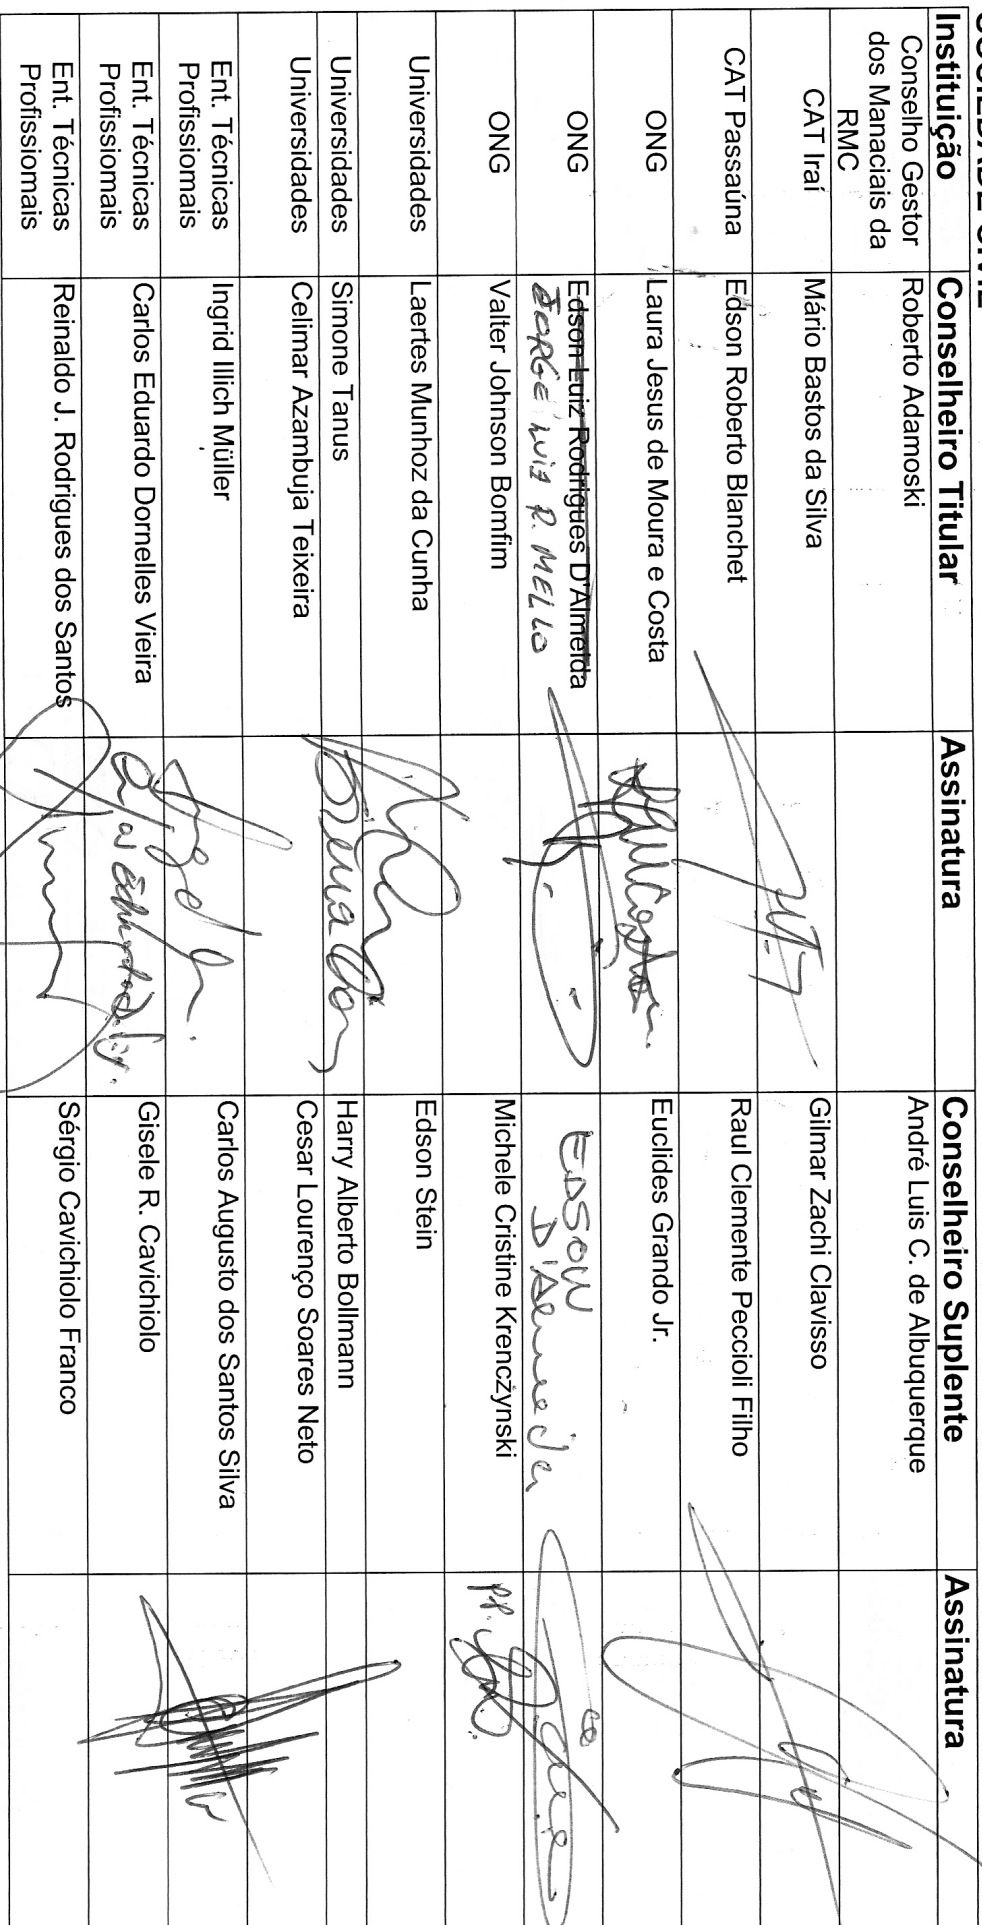 SOCIEDADE CIVIL
Instituição Conselheiro Titular Assinatura Conselheiro Suplente Assinatura
Conselho Gestor
dos Manaciais da
RMC
Roberto Adamoski André Luis C. de Albuquerque
CAT Iraí Mário Bastos da Silva Gilmar Zachi Clavisso
CAT Passaúna Edson Roberto Blanchet Raul Clemente Peccioli Filho
ONG Laura Jesus de Moura e Costa Euclides Grando Jr.
ONG Edson Luiz Rodrigues D'Almeida
JORGE LUIZ R. MELLO EDSON
ONG Valter Johnson Bomfim Michele Cristine Krenczynski
pp.
Universidades Laertes Munhoz da Cunha Edson Stein
Universidades Simone Tanus Harry Alberto Bollmann
Universidades Celimar Azambuja Teixeira Cesar Lourenço Soares Neto
Ent. Técnicas
Profissiomais
Ingrid Illich Müller Carlos Augusto dos Santos Silva
Ent. Técnicas
Profissiomais
Carlos Eduardo Dornelles Vieira Gisele R. Cavichiolo
Ent. Técnicas
Profissiomais
Reinaldo J. Rodrigues dos Santos Sérgio Cavichiolo Franco